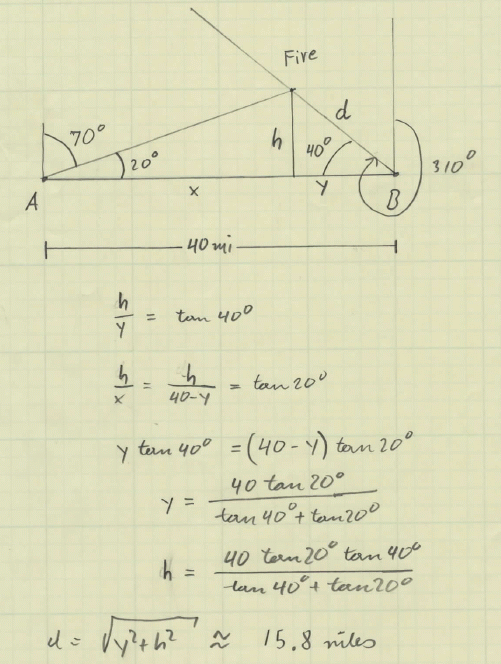 Fire
d
70°
h
40°
20°
310°
A
x
y
B
40 mi
h/y = tan 40°
h/x = h/40-y = tan 20°
y tan 40° = (40 - y) tan 20°
y = 40 tan 20° / tan 40° + tan 20°
h = 40 tan 20° tan 40° / tan 40° + tan 20°
d = √y²+h² ≈ 15.8 miles